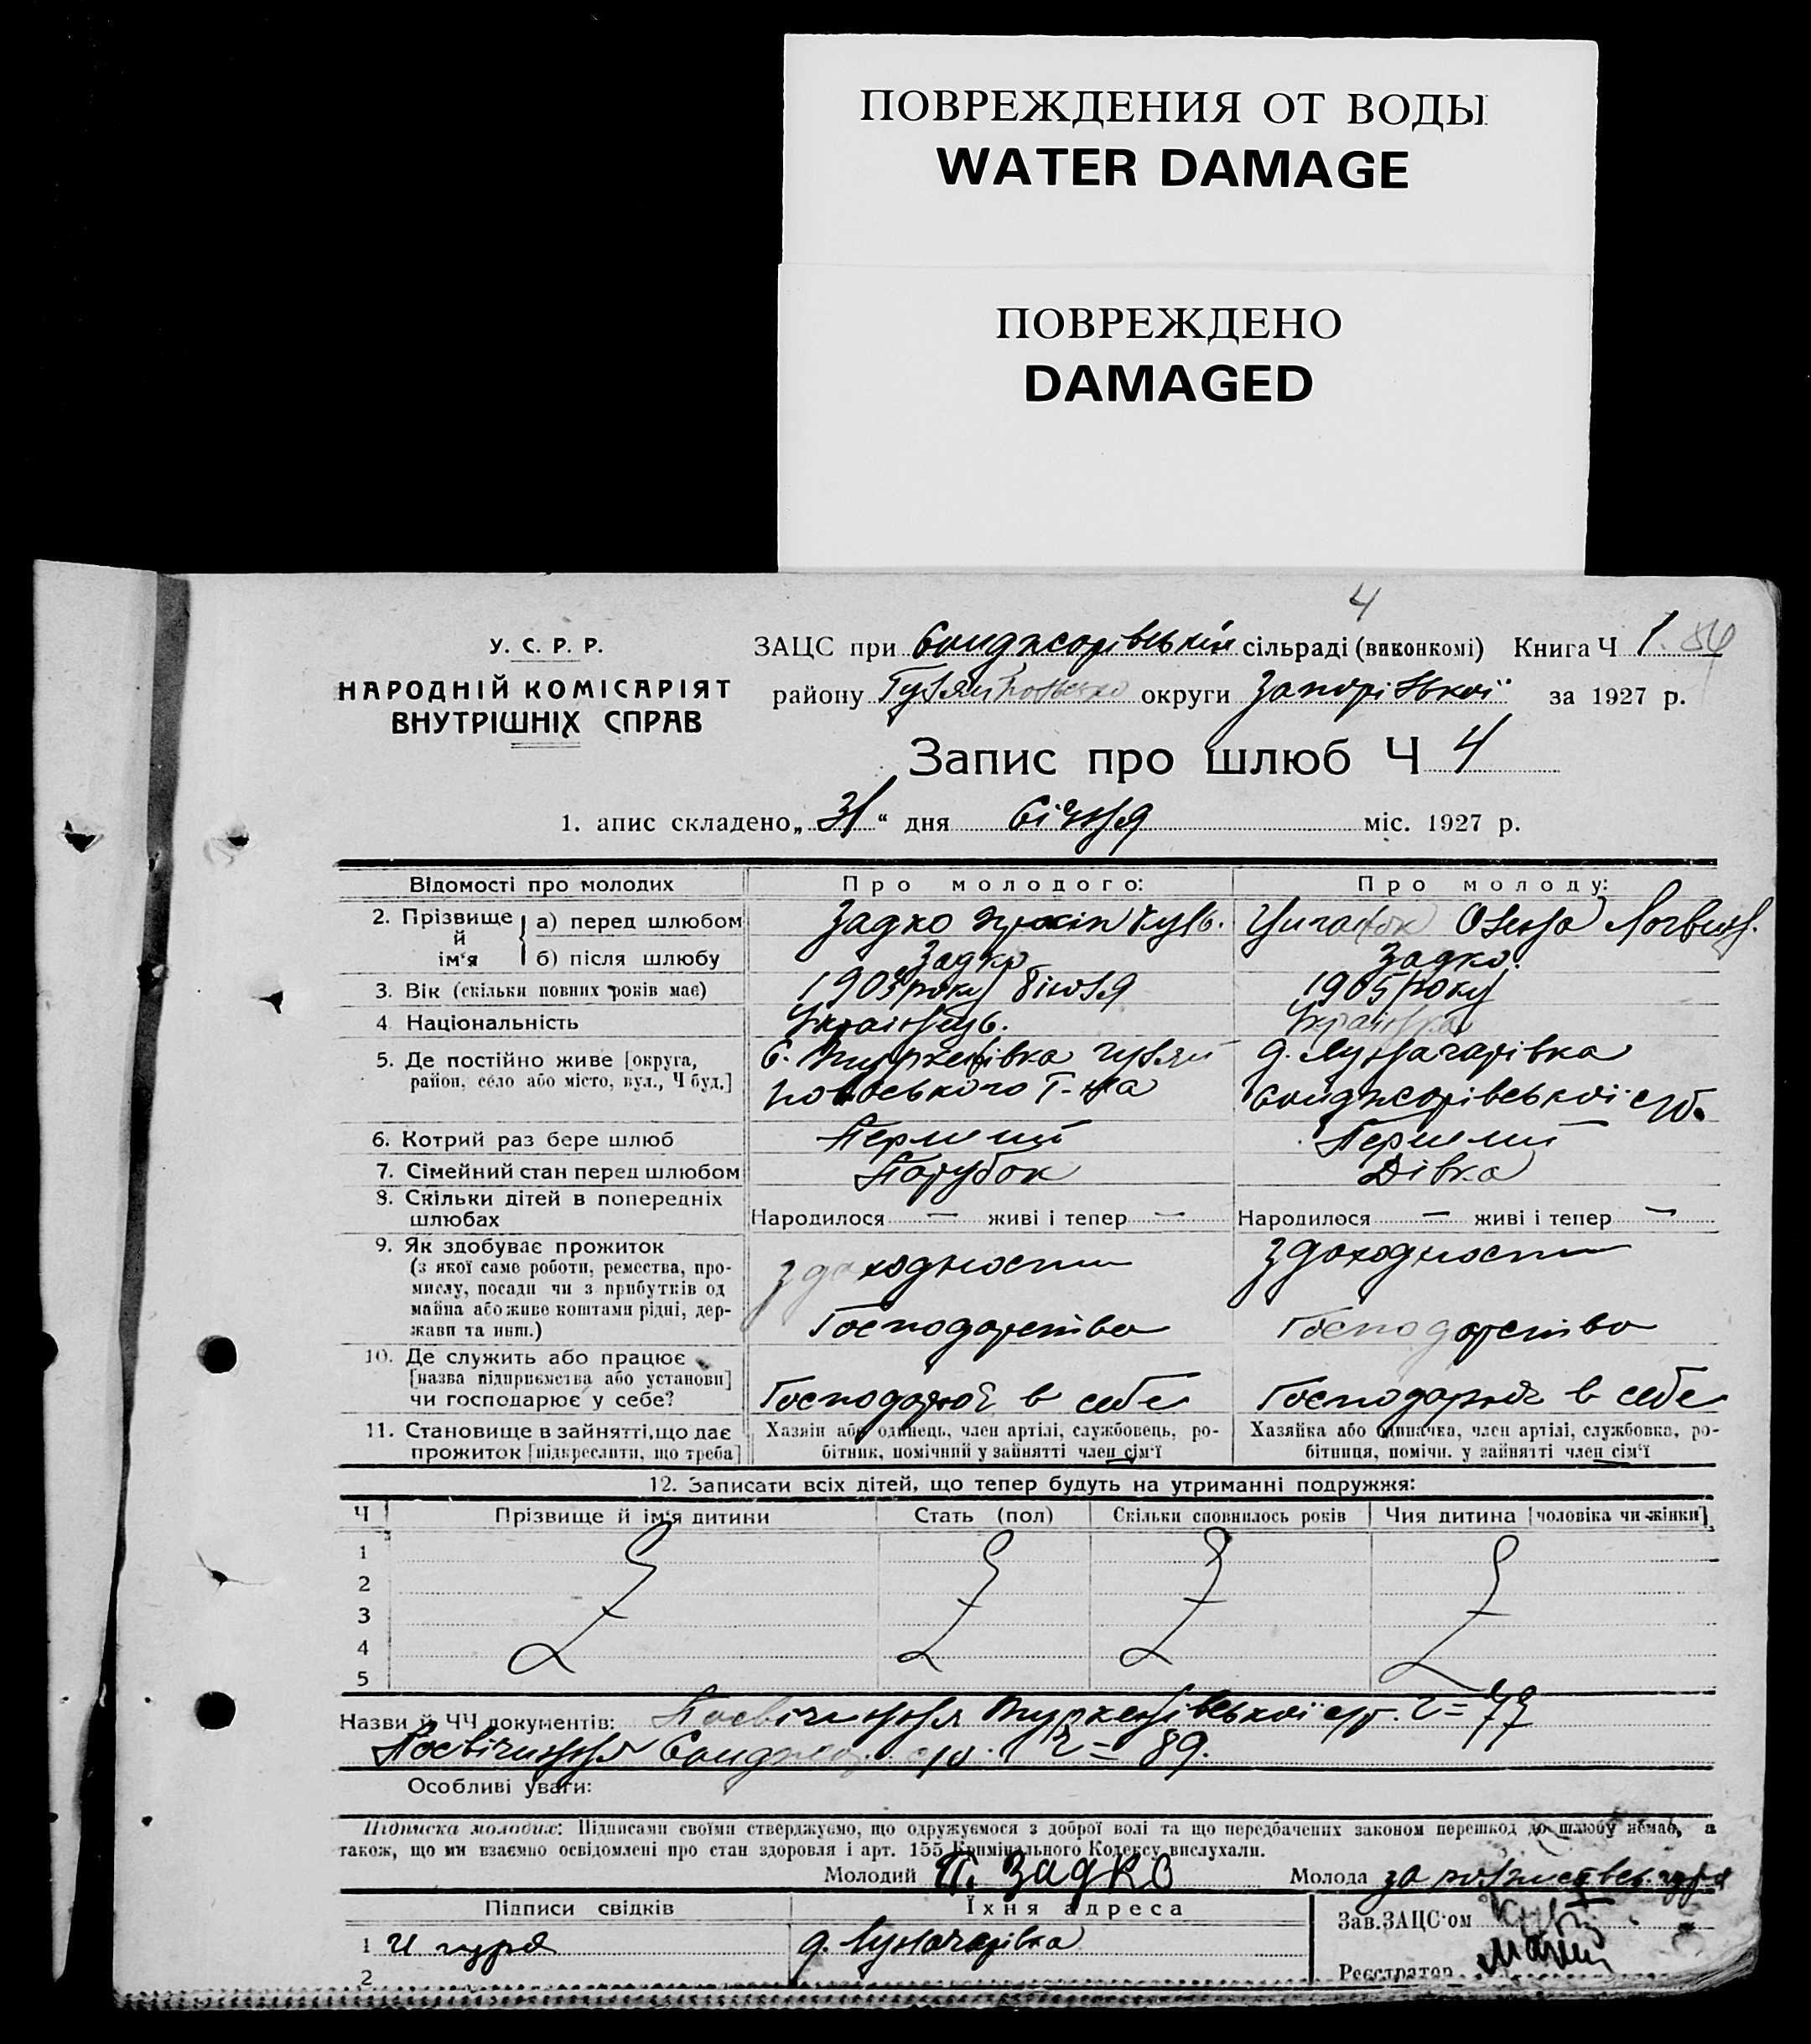 ПОВРЕЖДЕНИЯ ОТ ВОДЫ
WATER DAMAGE
ПОВРЕЖДЕНО
DAMAGED
4
У. С. Р. Р.
НАРОДНІЙ КОМІСАРІЯТ
ВНУТРІШНІХ СПРАВ
ЗАЦС при сільраді (виконкомі) Книга Ч 1
району округи Запорізької за 1927 р.
Запис про шлюб Ч 4
1. апис складено „31“ дня Січня міс. 1927 р.
Відомості про молодих Про молодого: Про молоду:
2. Прізвище й ім'я а) перед шлюбом Задко
б) після шлюбу Задко Задко.
3. Вік (скільки повних років має) 1905 року
4 Національність Українець. Українка
5. Де постійно живе [округа, район, село або місто, вул., Ч буд.] С. Туркенівка Гуляй д. Луначарівка
польського Р-на
6. Котрий раз бере шлюб Перший Перший
7. Сімейний стан перед шлюбом Парубок Дівка
8. Скільки дітей в попередніх шлюбах Народилося — живі і тепер — Народилося — живі і тепер —
9. Як здобуває прожиток
(з якої саме роботи, ремества, промислу, посади чи з прибутків од майна або живе коштами рідні, держави та инш.) з доходности з доходности
Господарства Господарства
10. Де служить або працює
[назва підприємства або установи]
чи господарює у себе? Господарює в себе Господарює в себе
11. Становище в зайнятті, що дає прожиток [підкреслити, що треба] Хазяїн або одинець, член артілі, службовець, робітник, помічний у зайнятті член сім'ї Хазяйка або одиначка, член артілі, службовка, робітниця, помічн. у зайнятті член сім'ї
12. Записати всіх дітей, що тепер будуть на утриманні подружжя:
Ч Прізвище й ім'я дитини Стать (пол) Скільки сповнилось років Чия дитина [чоловіка чи жінки]
1
2
3
4
5
Назви й ЧЧ документів: Посвічення Туркенівської с/р. 77
Посвічення 89.
Особливі уваги:
Підписка молодих: Підписами своїми стверджуємо, що одружуємося з доброї волі та що передбачених законом перешкод до шлюбу немає, а
також, що ми взаємно освідомлені про стан здоровля і арт. 155 Кримінального Кодексу вислухали.
Молодий П. Задко Молода за
Підписи свідків Їхня адреса Зав.ЗАЦС'ом
1 д. Луначарівка
2 Реєстратор